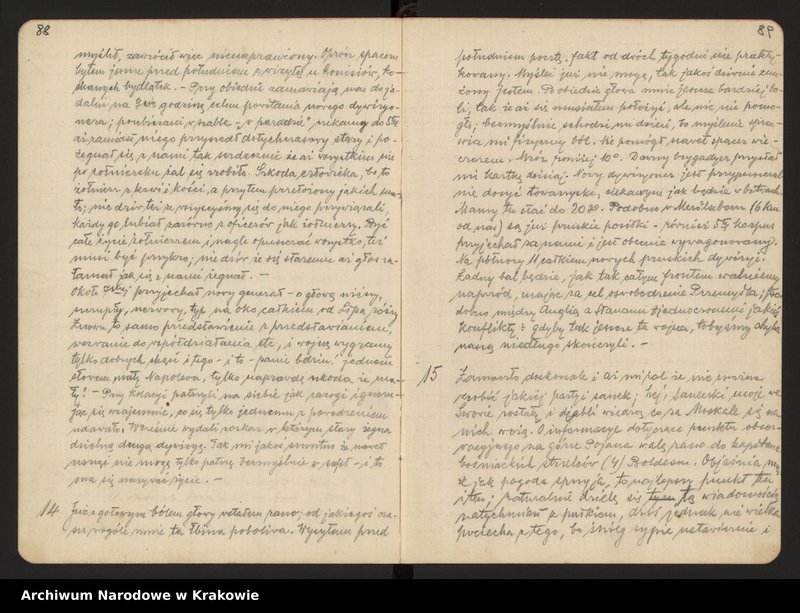 88
myślił, zawrócił więc nienaprawiony. Oprócz spaceru
byłem jeszcze przed południem z wizytą u konisiów, ko-
chanych bydlątek. – Przy obiedzie zamawiają nas do je-
dalni na 7mą godzinę celem powitania nowego dywizyo-
nera; poubierani w szable – "w paradzie" czekamy do
aż zamiast niego przyszedł dotychczasowy stary i po-
żegnał się z nami tak serdecznie że aż wszystkim nie
po żołniersku żal się zrobiło. Szkoda człowieka, bo to
żołnierz z krwi i kości, a przytem przełożony jakich ma-
ło; nie dziw też że wszyscyśmy się do niego przywiązali,
każdy go lubiał zarówno z oficerów jak żołnierzy. Być
całe życie żołnierzem i nagle opuszczać wszystko, też
musi być przykro; nie dziw że się staremu aż głos za-
łamał jak się z nami żegnał. –
Około przyjechał nowy generał – o głowę niższy,
nerwowy, typ na oko całkiem od
to samo przedstawienie z przedstawianiem,
wezwanie do współdziałania etc, i wojnę wygramy
tylko dobrych chęci i tego – i to – panie będzie. Jednem
słowem mały Napoleon, tylko naprawdę szkoda że ma-
ły! – Przy kolacyi patrzyli na siebie jak zarogi ignoru-
jąc się wzajemnie, co się tylko jednemu z powodzeniem
udawało. Wcześnie wydali rozkaz w którym stary żegna
dzielną drugą dywizyę. Tak mi jakoś smutno że nawet
nie mogę tylko patrzę bezmyślnie w sufit – i to
ma się nazywać życie. –
14 Już z gotowym bólem głowy wstałem rano; od jakiegoś cza-
su wogóle mnie ta łbina pobolewa. Wysyłam przed
89
południem pocztę, fakt od dwóch tygodni nie prakty-
kowany. Myśleć już nie mogę, tak jakoś dziwnie zmę-
żony jestem. Po obiedzie głowa mnie jeszcze bardziej bo-
li, tak że aż się musiałem położyć, ale nic nie pomo-
gło; bezmyślnie schodzi mi dzień, bo myślenie spra-
wia mi fizyczny ból. Nie pomógł nawet spacer wie-
czorem. Mróz poniżej 10°. Dawny brygadyer przysłał
mi kartkę dzisiaj. Nowy dywizyoner jest przypuszczał
nie dosyć towarzyski, ciekawym jak będzie w bitwach.
Mamy tu stać do 20go. Podobno w (6 km
od nas) są już pruskie posiłki – również korpus
przyjechał za nami i jest obecnie wywagonowany.
Na północy całkiem nowych pruskich dywizyi.
Ładny bal będzie, jak tak całym frontem walniemy
naprzód, mając za cel oswobodzenie Przemyśla; po-
dobno między Anglią a Stanami Zjednoczonemi jakieś
konflikty? gdyby tak jeszcze ta wojna, tobyśmy chyba
naszą niedługo skończyli. –
15 Zamarzło doskonale i aż mi żal że nie można
zrobić jakiej partyi sanek; hej, saneczki moje we
Lwowie zostały i djabli wiedzą co za Moskale się na
nich wożą. O informacye dotyczące punktu obser-
wacyjnego na górze Pojana walę rano do kapitana
bośniackich strzelców (4) Boldesne. Objaśnia mię
że jak pogoda sprzyja, to najlepszy punkt tu
i tu; naturalnie dzielę się tą wiadomością
natychmiast z pułkiem, dziś jednak nie wielka
pociecha z tego, bo śnieg sypie ustawicznie i
Archiwum Narodowe w Krakowie